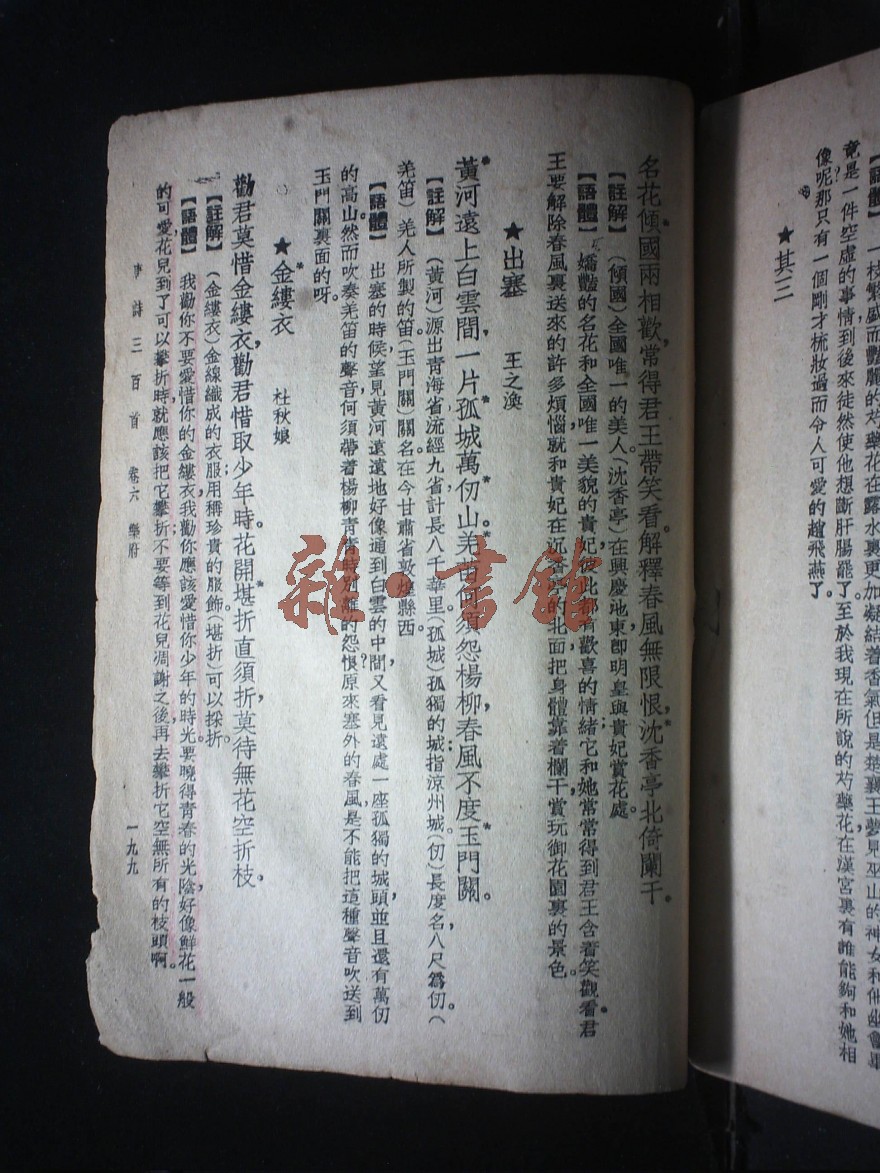 【語體】 一枝繁盛而艷麗的芍藥花在露水裏更加凝結着香氣但是楚襄王夢見巫山的神女和他幽會畢
竟是一件空虛的事情到後來徒然使他想斷肝腸罷了至於我現在所說的芍藥花在漢宮裏有誰能夠和她相
像呢?那只有一個剛才梳妝過而令人可愛的趙飛燕了。
★其三
名花傾國兩相歡,常得君王帶笑看。解釋春風無限恨,沈香亭北倚闌干。
【註解】 (傾國)全國唯一的美人。(沈香亭)在興慶池東,卽明皇與貴妃賞花處。
【語體】 嬌豔的名花和全國唯一美貌的貴妃,彼此都有歡喜的情緒;它和她常常得到君王含着笑觀看。君
王要解除春風裏送來的許多煩惱,就和貴妃在沉香亭的北面把身體靠着欄干賞玩御花園裏的景色。
★出塞 王之渙
黃河遠上白雲間,一片孤城萬仞山。羌笛何須怨楊柳,春風不度玉門關。
【註解】 (黃河)源出青海省,流經九省,計長八千華里。(孤城)孤獨的城,指涼州城。(仞)長度名,八尺爲仞。(
羌笛)羌人所製的笛。(玉門關)關名,在今甘肅省敦煌縣西。
【語體】 出塞的時候,望見黃河遠遠地好像通到白雲的中間;又看見遠處一座孤獨的城頭,並且還有萬仞
的高山。然而吹奏羌笛的聲音,何須帶着楊柳青青時別離的怨恨?原來塞外的春風,是不能把這種聲音吹送到
玉門關裏面的呀。
★金縷衣 杜秋娘
勸君莫惜金縷衣,勸君惜取少年時。花開堪折直須折,莫待無花空折枝。
【註解】 (金縷衣)金線織成的衣服,用稱珍貴的服飾。(堪折)可以採折。
【語體】 我勸你不要愛惜你的金縷衣;我勸你應該愛惜你少年的時光。要曉得青春的光陰,好像鮮花一般
的可愛,花兒到了可以攀折時,就應該把它攀折,不要等到花兒凋謝之後,再去攀折它空無所有的枝頭啊。
唐詩三百首 卷六 樂府 一九九
雜·書館